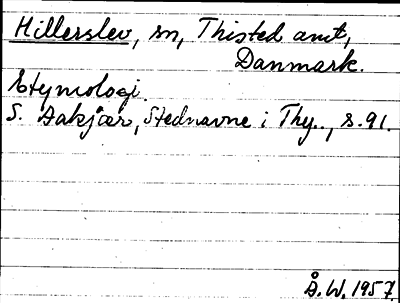 Hillerslev, sn, Thisted amt,
Danmark.
Etymologi.
S. Aakjær, Stednavne i Thy., s. 91.
Å. W. 1957.